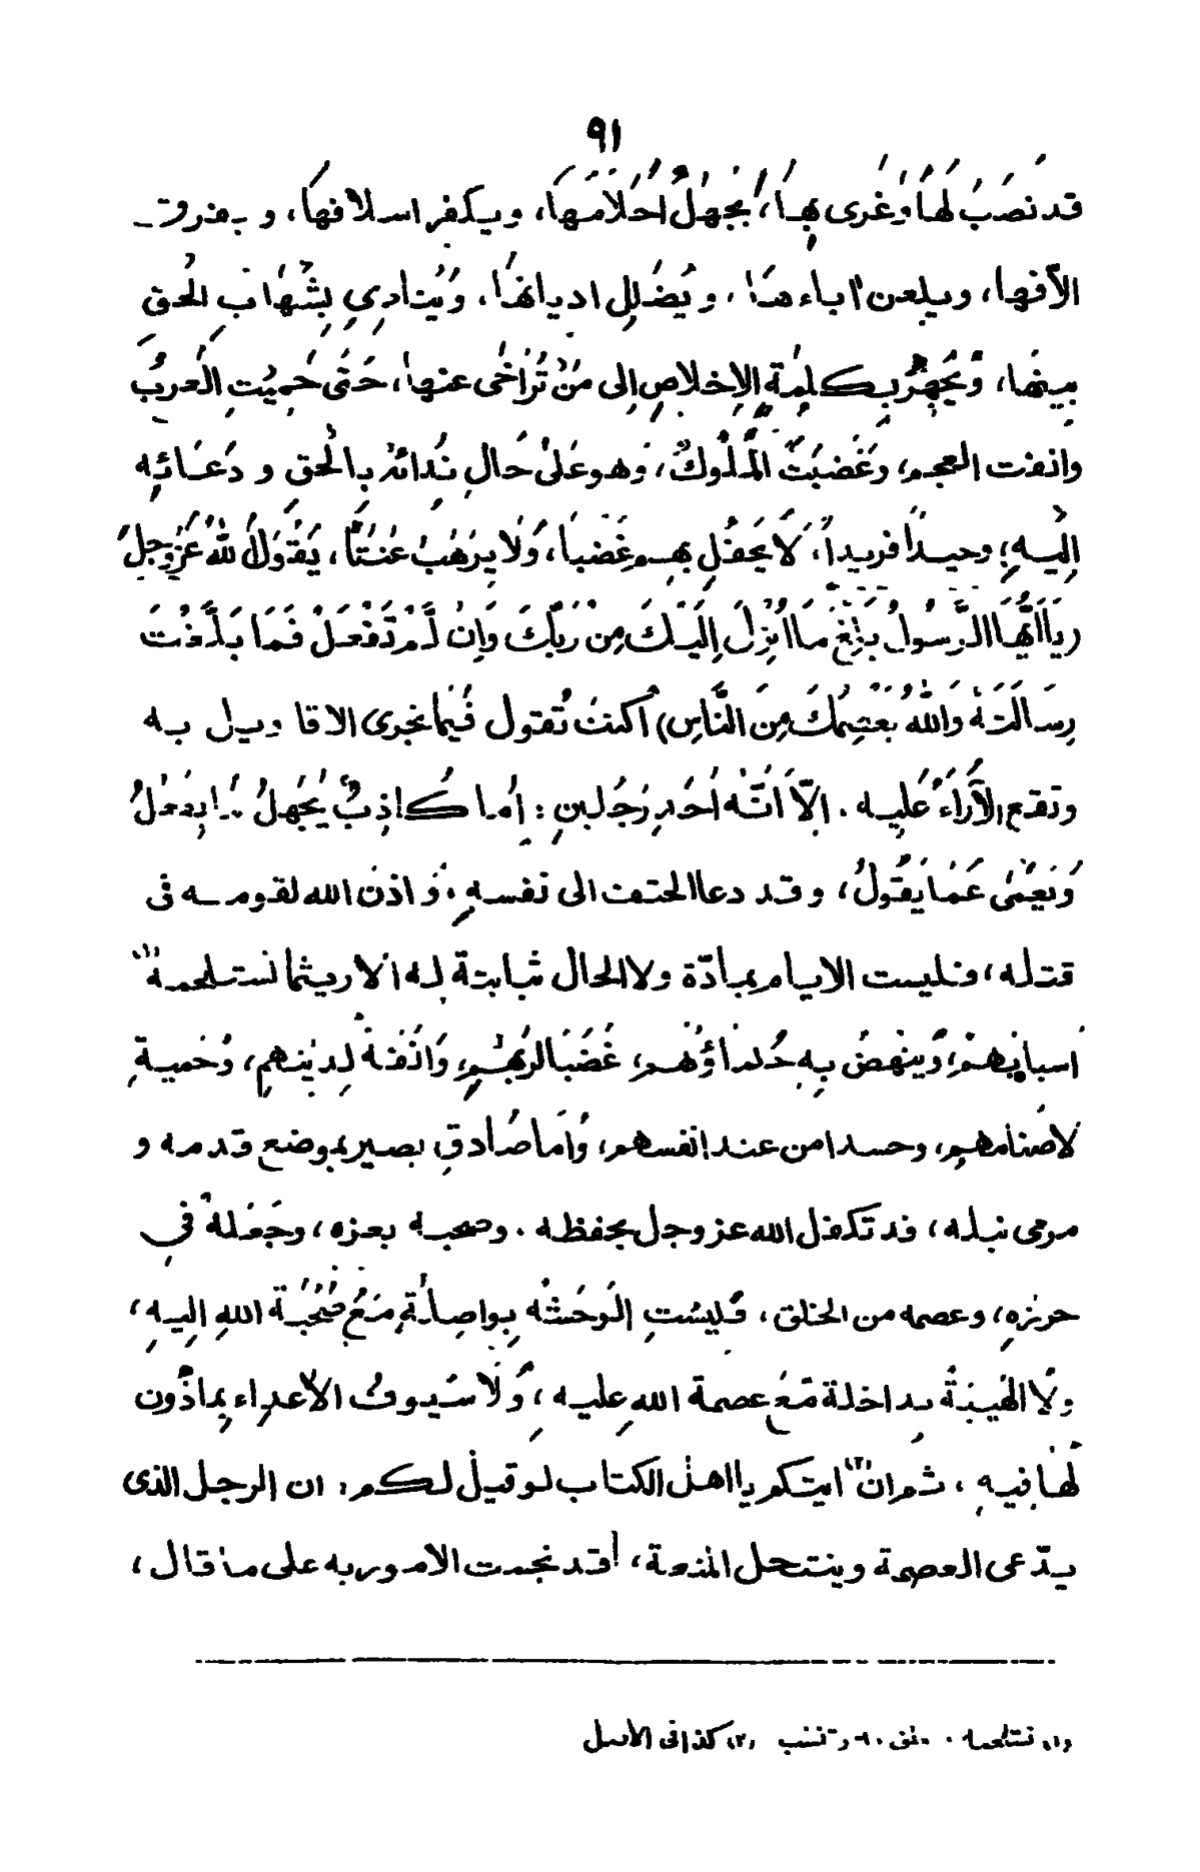 ٩١
قد نصَبَ لهَا وَغَرى بِهَا، بجهلُ احُلَامَهَا، ويكفر اسلافهَا، و يفرق
الآفها، ويلعن اباءهَا، ويُضللِ اديانهَا، وَيُنَادِي بِشْهَابِ الحُقِ
بينهَا، وَيُجهَرُ بِكلِمَةِ الاِخلاصِ اِلى مَنْ تُرَاخَى عنها، حَتَّى حَميُتِ الُعربُ
وانفت العجم، وَغَضَبَتْ الْمُلُوكُ، وَهو عَلىْ حَالِ نِدَائهُ بِالُحقِ و دُعَائِه
اِليهِ، وحيداً فريداً، لَا يَحَفُلِ بهم غَضَبا، وَلَا يرَهَبُ عَنَتَاً، يَقُوَلُ اللهُ عَزَوجلَ
(يَاأَيُّهَا الرَّسُولُ بَلِّغْ مَا أُنْزِلَ اِلَيْكَ مِن رَبِّكَ وَإِنْ لَّمْ تَفْعَلْ فَمَا بَلَّغْتَ
رِسَالَتَهُ وَاللهُ يَعْصِمُكَ مِنَ النَّاسِ) أكنتُ تُقول فُيما تجرى الاقا ويل به
وتقع الآرَاءُ عَليه. اِلّا اَنَّهُ اَحَد رَجُلينِ: اِما كُاذِبٌ يُجَهلُ مَا يِفعلُ
وَنَعِمَى عَمَا يَقُولُ، وقد دعا الحتف الى نفسهِ، وَ اذن الله لقومه فى
قتله، فليست الايام بمادّة ولا الحال ثابتة له الاريثما تستلحمه(١)
اَسبابهمْ، وَينهضُ بِهِ حُلماؤُهم، غُضَبَا لرَبهِم، وَانَفةً لِدينهمِ، وَحَميةِ
لاصُنامهمِ، وحسدا من عند انفسهم، وَاَما صُادقِ بصير بموضع قدمه و
مرمى نبله، قد تكفل الله عز وجل بحفظه. وصحبه بعزه، وجَعَلهُ فِي
حرزهِ، وعصمه من الخلق، فَليسُتِ الوَحَشةُ بِواصِلةٍ مَعُ صُحُبَة اللهِ اِليهِ،
ولَا الهَيبَةُ بداخلة مَعَ عصمة اللهِ عليه، وَلَا سَيوفُ الأعدِاء بِماذُون
لهَا فيهِ، ثم ان(٢) ايتكم يا اهل الكتاب لو قيل لكم: ان الرجل الذى
يدّعى العصمة وينتحل المنعة، أقد نجمت الامور به على ما قال،
(٢) كذا فى الأصل